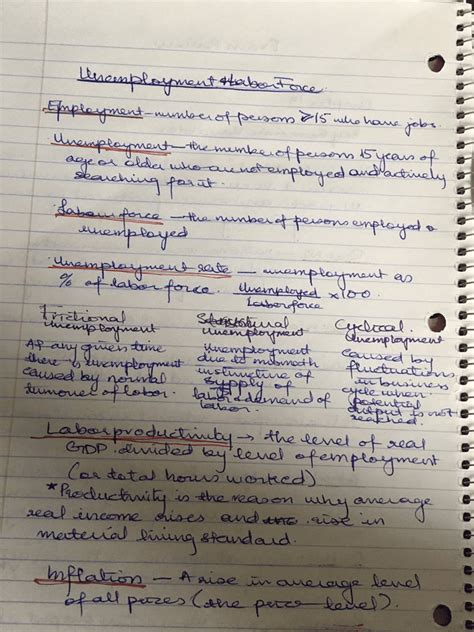 Unemployment & Labor Force
Employment - number of persons ≥15 who have jobs.
Unemployment - the number of persons 15 years of
age or older who are not employed and actively
searching for it.
Labour force - the number of persons employed &
unemployed
Unemployment rate - unemployment as
% of labor force. Unemployed / Labor force x 100.
Frictional unemployment
At any given time
there is unemployment
caused by normal
turnover of labor.
Structural unemployment
unemployment
due to mismatch
in structure of
supply of
labor & demand of
labor.
Cyclical unemployment
caused by
fluctuations
in business
cycle when
potential
output is not
reached.
Labor productivity → the level of real
GDP divided by level of employment
(or total hours worked)
*Productivity is the reason why average
real income rises and rise in
material living standard.
Inflation - A rise in average level
of all prices (the price level).